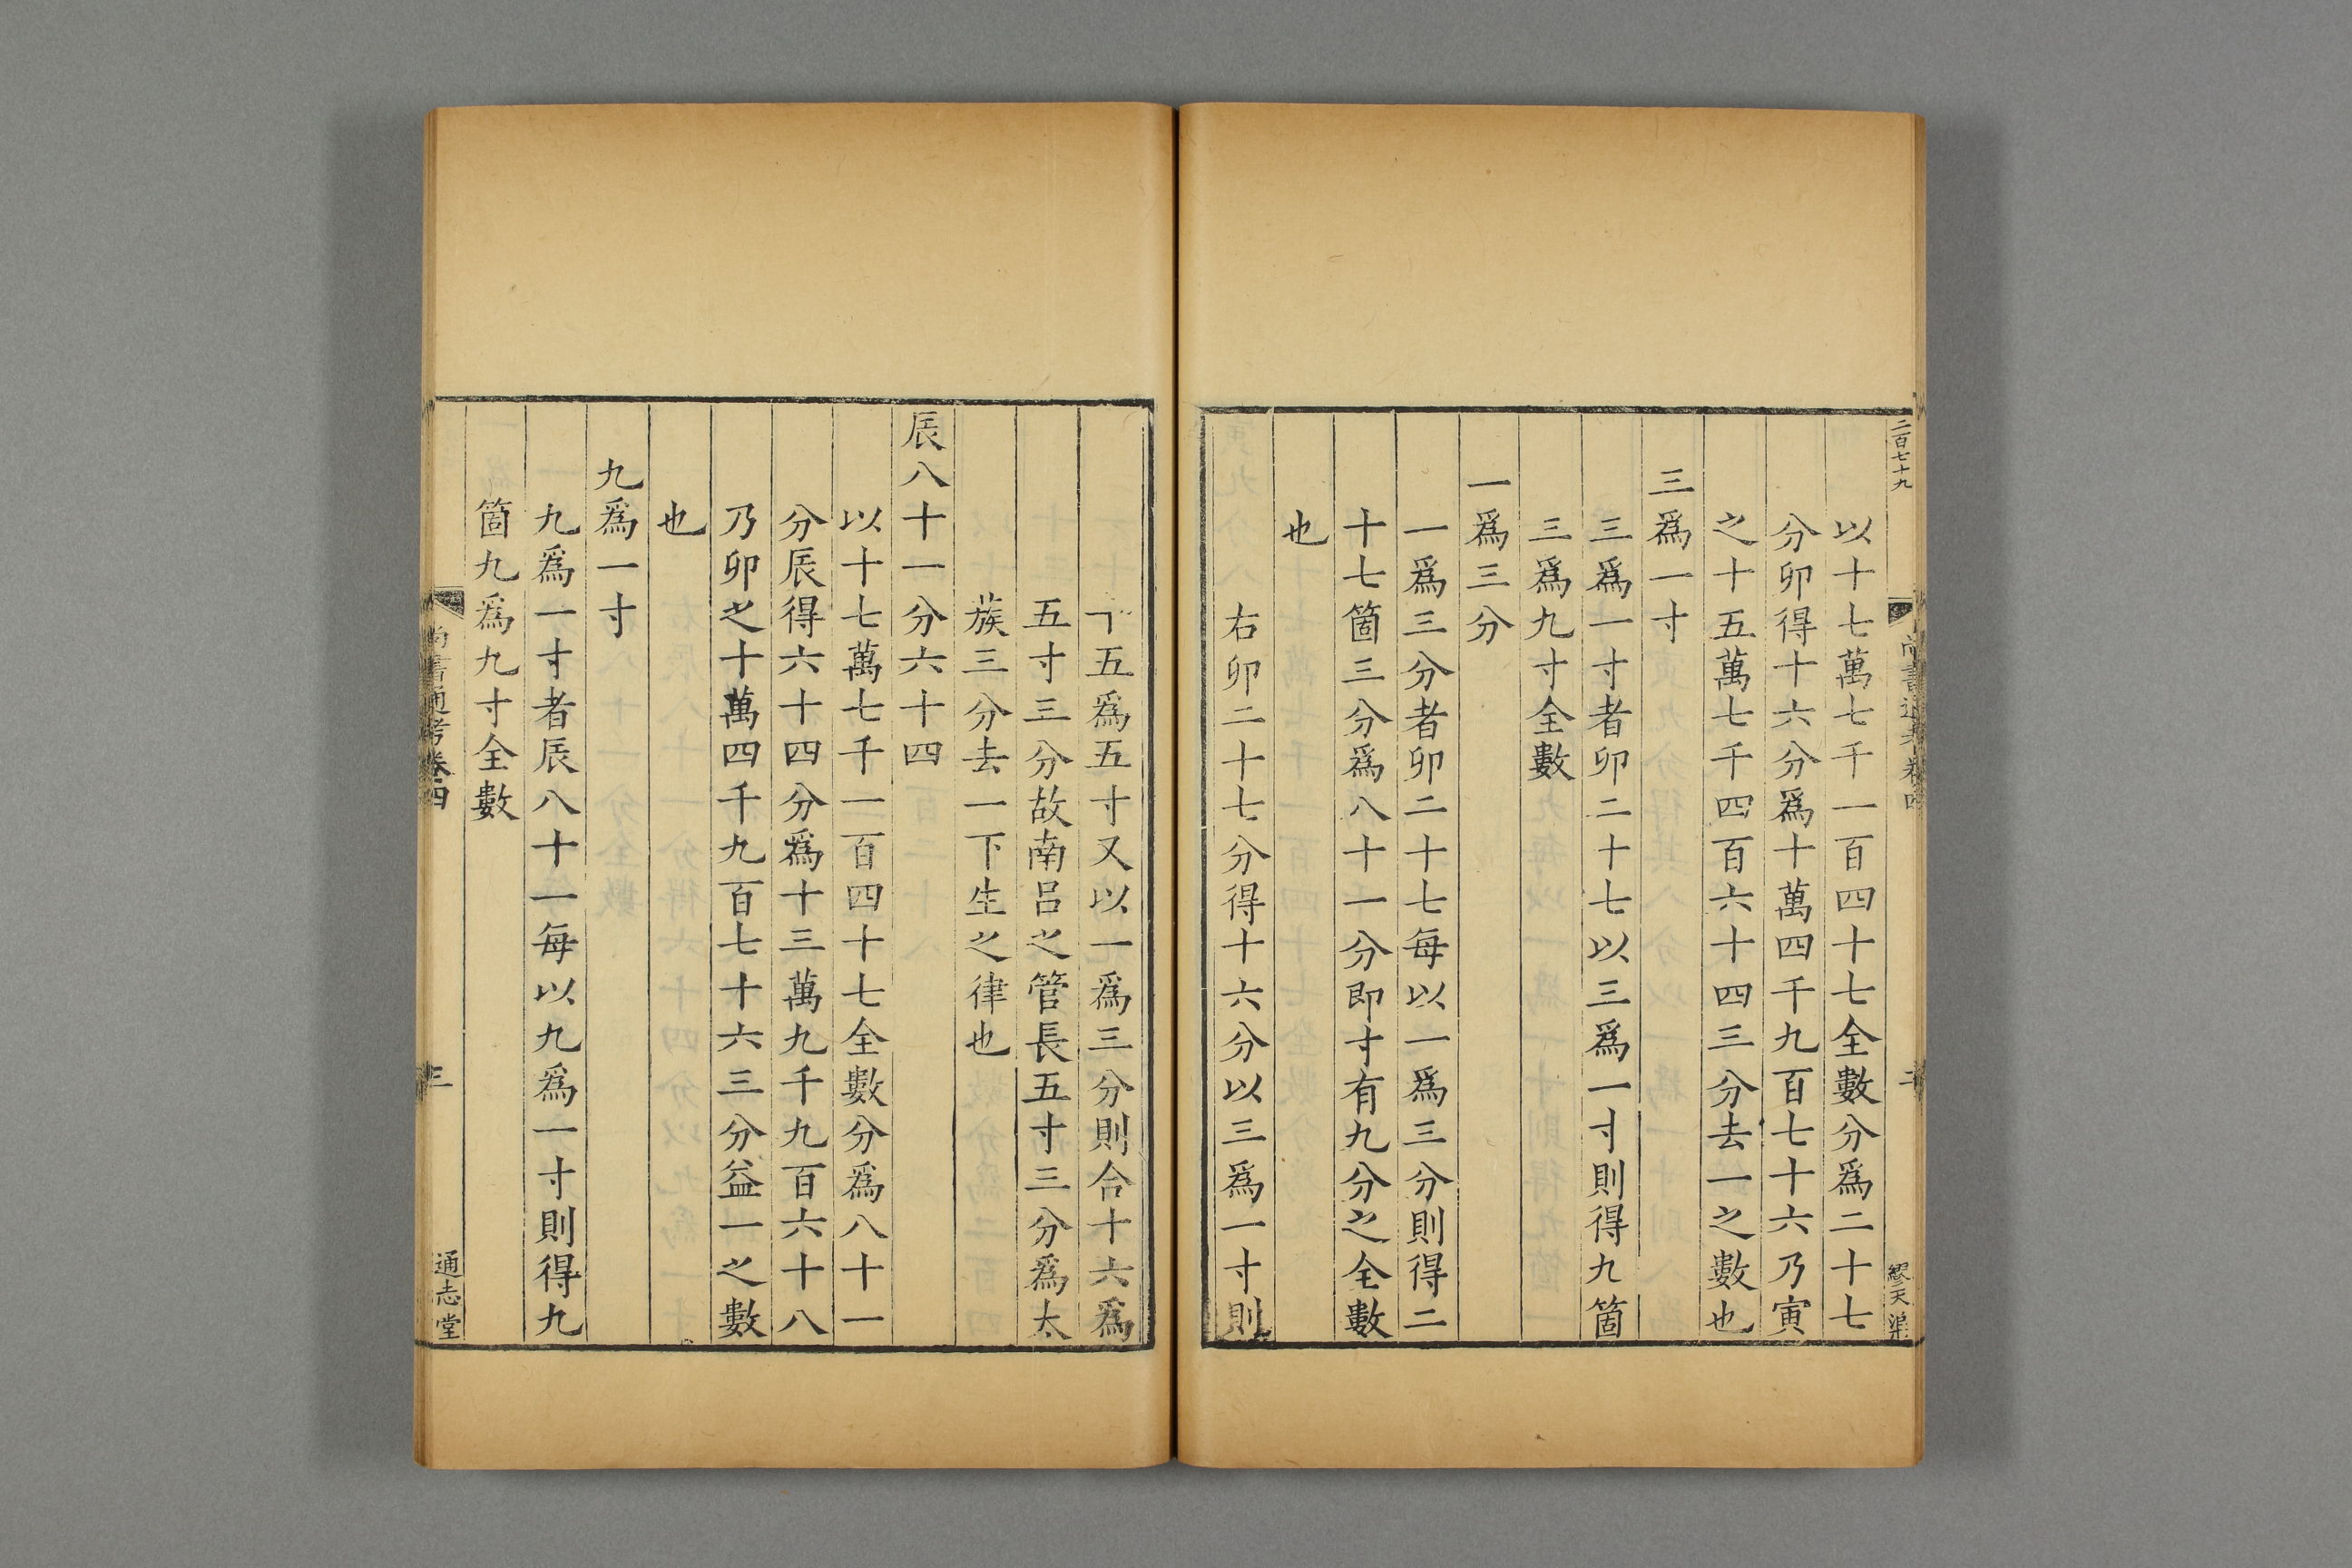 二百七十九
以十七萬七千一百四十七全數分爲二十七
分卯得十六分爲十萬四千九百七十六乃寅
之十五萬七千四百六十四三分去一之數也
三爲一寸
三爲一寸者卯二十七以三爲一寸則得九箇
三爲九寸全數
一爲三分
一爲三分者卯二十七每以一爲三分則得二
十七箇三分爲八十一分即寸有九分之全數
也
右卯二十七分得十六分以三爲一寸則
五爲五寸又以一爲三分則合十六爲
五寸三分故南呂之管長五寸三分爲太
蔟三分去一下生之律也
辰八十一分六十四
以十七萬七千一百四十七全數分爲八十一
分辰得六十四分爲十三萬九千九百六十八
乃卯之十萬四千九百七十六三分益一之數
也
九爲一寸
九爲一寸者辰八十一每以九爲一寸則得九
箇九爲九寸全數
尚書通考卷四
三
通志堂